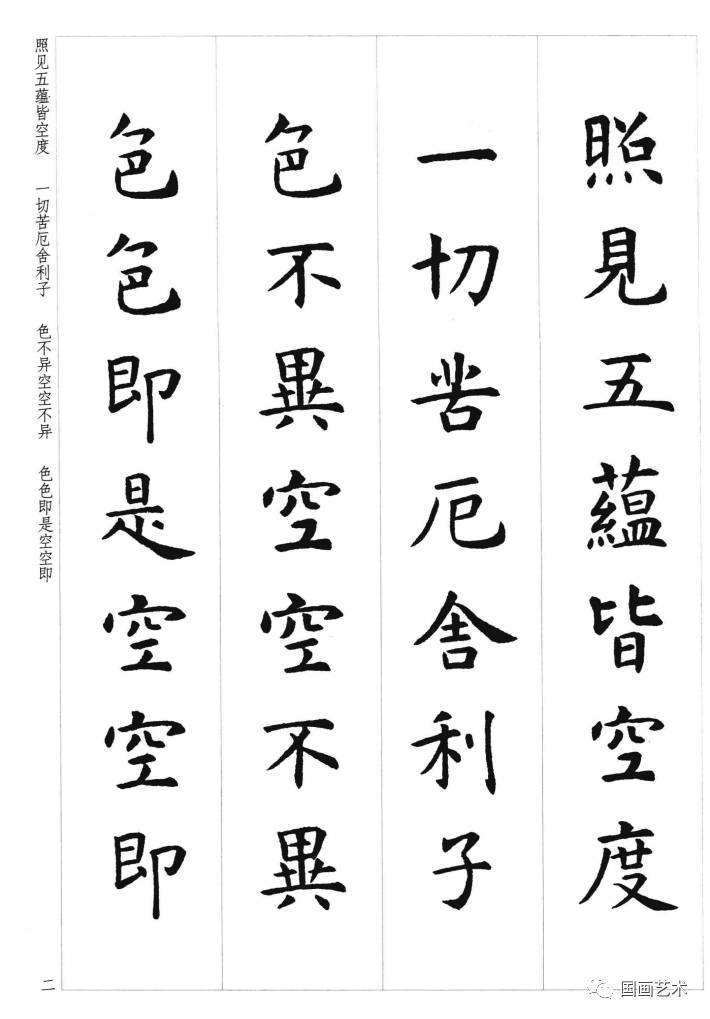 照見五蘊皆空度
一切苦厄舍利子
色不異空空不異
色色即是空空即
照见五蕴皆空度　一切苦厄舍利子　色不异空空不异　色色即是空空即
二
国画艺术